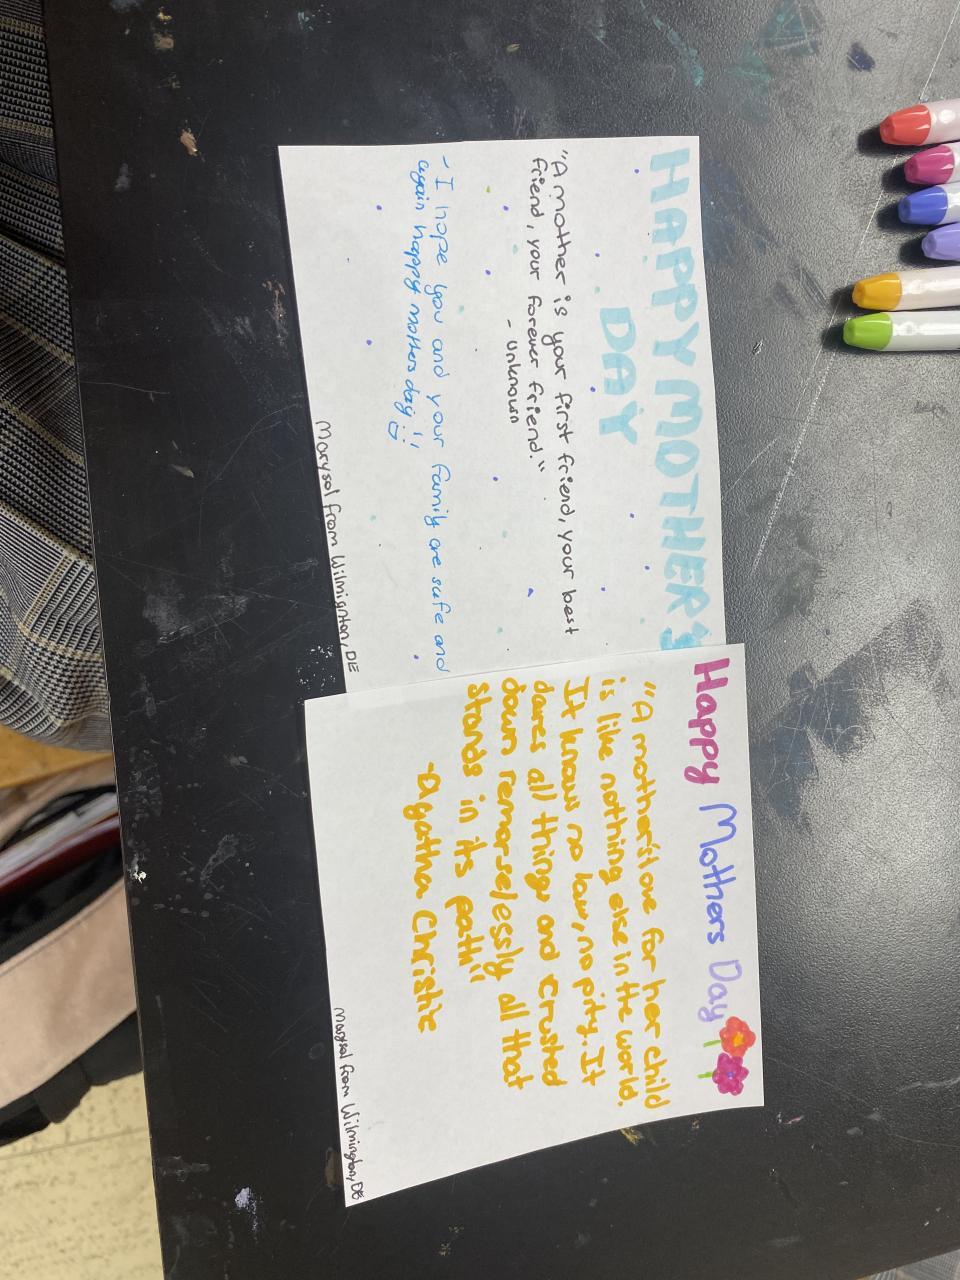 HAPPY MOTHER'S
DAY
"A mother is your first friend, your best
friend, your forever friend."
- Unknown
- I hope you and your family are safe and
again happy mothers day!!
Marysol from Wilmignton, DE
Happy Mothers Day
"A mother's love for her child
is like nothing else in the world.
It knows no law, no pity. It
dares all things and crusted
down remorselessly all that
stands in its path"
-Agatha Christie
Marysol from Wilmington, DE